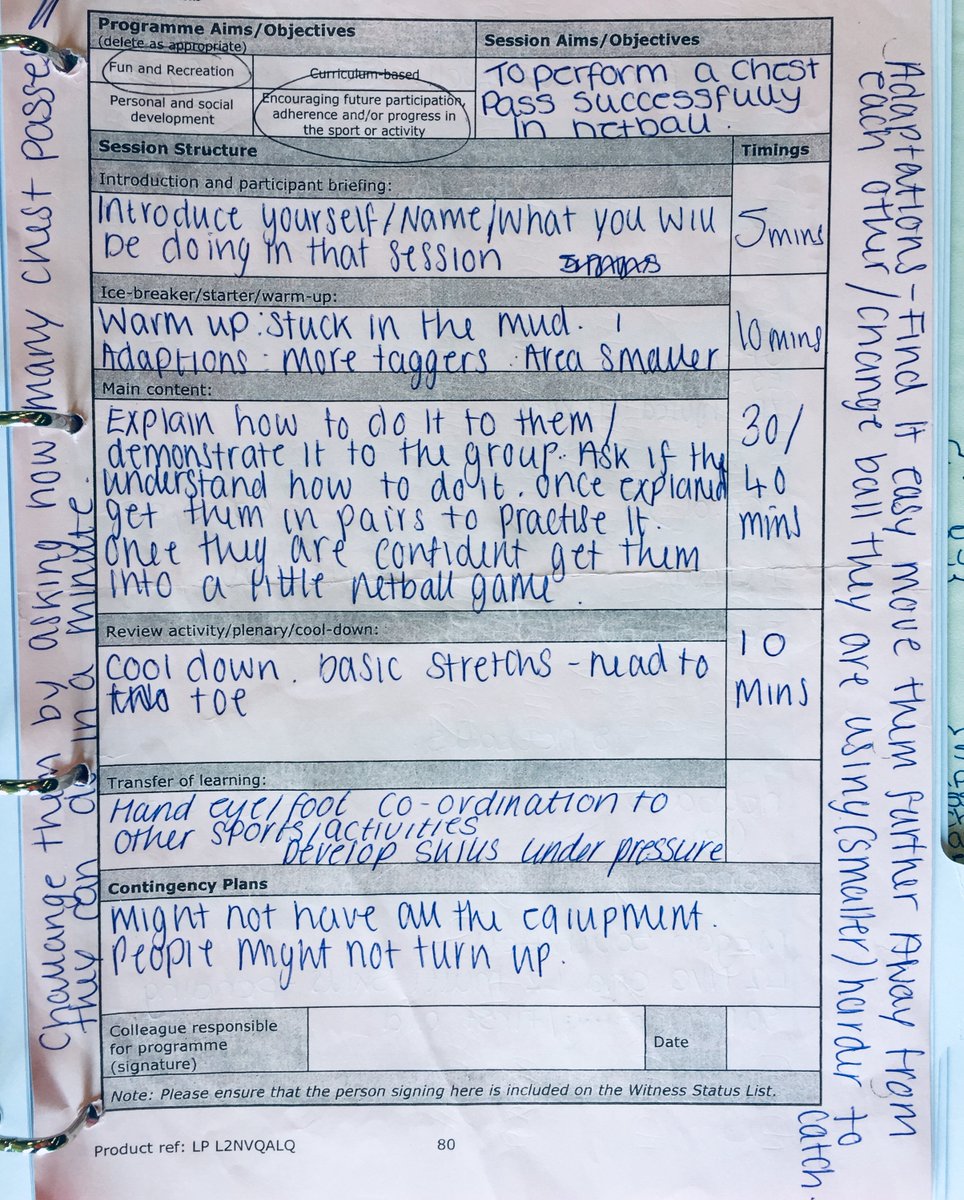 Programme Aims/Objectives
(delete as appropriate)
Session Aims/Objectives
Fun and Recreation
Curriculum-based
Personal and social
development
Encouraging future participation,
adherence and/or progress in
the sport or activity
To perform a chest
pass successfully
in netball.
Session Structure
Timings
Introduction and participant briefing:
Introduce yourself/Name/What you will
be doing in that session
5 mins
Ice-breaker/starter/warm-up:
Warm up: Stuck in the mud.
Adaptions: more taggers. Area smaller
10 mins
Main content:
Explain how to do it to them/
demonstrate it to the group. Ask if they
understand how to do it. once explained
get them in pairs to practise it.
once they are confident get them
into a little netball game.
30/
40
mins
Review activity/plenary/cool-down:
cool down. basic stretchs - head to
toe
10
mins
Transfer of learning:
Hand eye/foot co-ordination to
other sports/activities
Develop skills under pressure
Contingency Plans
Might not have all the eqiupment.
People might not turn up.
Colleague responsible
for programme
(signature)
Date
Note: Please ensure that the person signing here is included on the Witness Status List.
Product ref: LP L2NVQALQ
80
Challange them by asking how many chest passes
they can do in a minute.
Adaptations - Find it easy move them further Away from
each other/change ball they are using (smaller/harder to
catch.